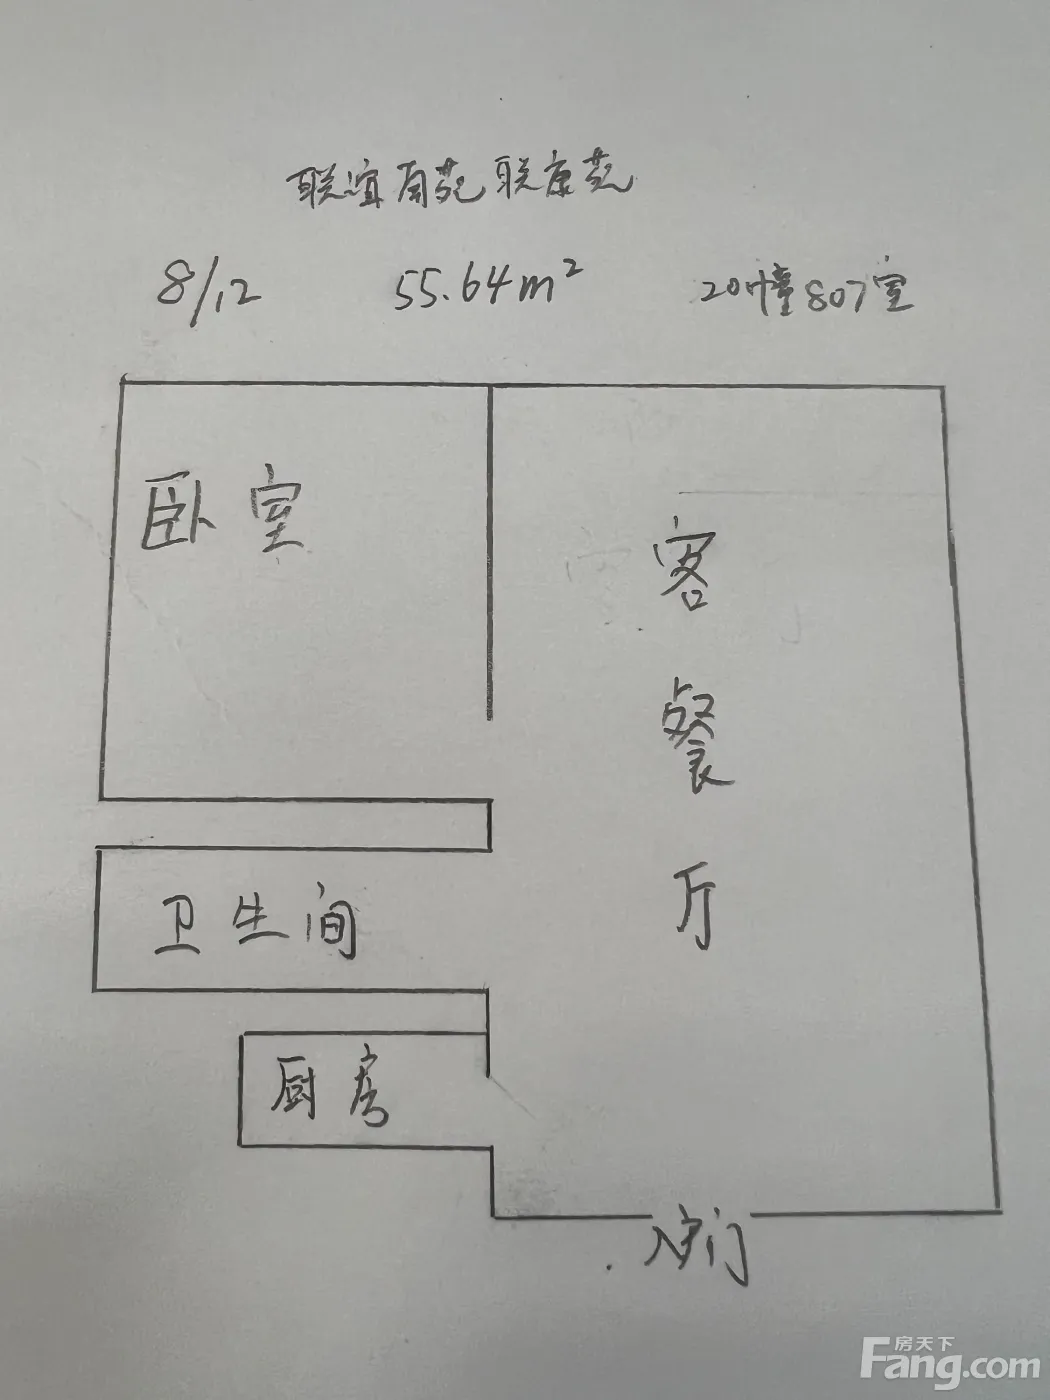 联谊南苑联康苑
8/12 55.64m² 20幢807室
卧室
客餐厅
卫生间
厨房
入户门
房天下
Fang.com